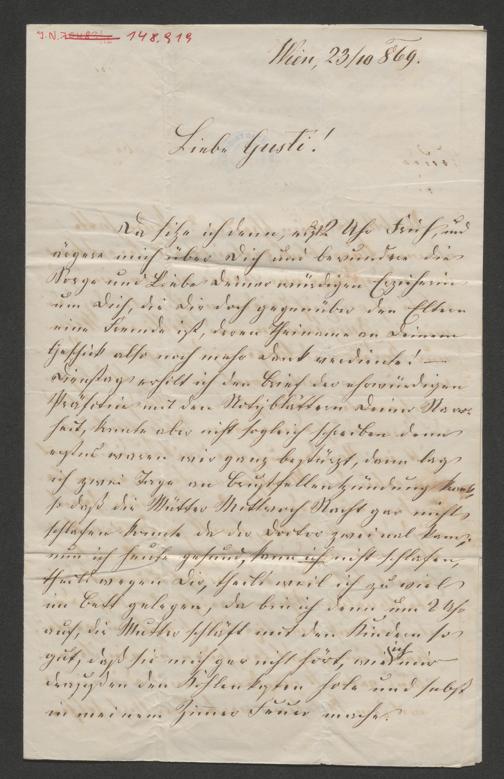 J.N. 148.919
Wien, 23/10 869.
Liebe Gusti!
Da sitze ich denn, 2 Uhr Früh, und
ärgere mich über Dich und bewundere die
Sorge und Liebe Deiner würdigen Erzieherin
um Dich, die Dir doch gegenüber den Eltern
eine Fremde ist, deren Theiname an Deinem
Geschick also noch mehr Dank verdiente! —
Dienstag erhilt ich den Brief der ehrwürdigen
Präfektin mit den Notizblättern Deiner
heit, konnte aber nicht sogleich schreiben denn
waren wir ganz bestürzt, dann lag
ich zwei Tage an Brustfellentzündung krank,
so daß die Mutter Mittwoch Nacht gar nicht
schlafen konnte da der Doctor zweimal kam,
nun ich heute gesund, kann ich nicht schlafen,
theils wegen Dir, theils weil ich zu viel
im Bett gelegen, da bin ich denn um 2 Uhr
auf, die Mutter schläft mit den Kindern so
gut, daß sie mich gar nicht hört, wie ich mir
draußen den Kohlenkasten hole und selbst
in meinem Zimmer Feuer mache.